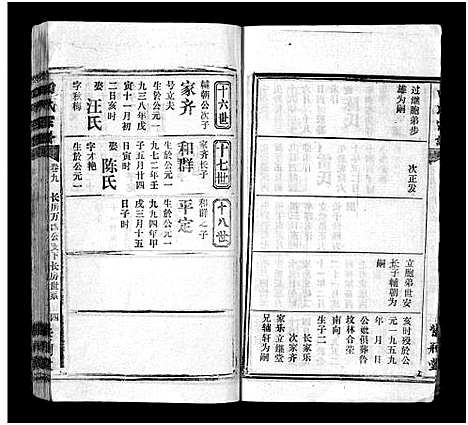 过继胞弟步
雄为嗣
次正发
立胞弟世安
长子辅朝为
嗣
亥时殁於公
元一九五九
年 月 日
公妣俱葬鲁
坟林合茔
南向
生子二
长家乐
次家齐
家乐立继堂
兄辅轩为嗣
十六世
辅朝公次子
家齐
号立夫
生於公元一
九三八年戊
寅十一月初
二日亥时
娶 汪氏
字秋梅
十七世
家齐长子
和群
生於公元一
九七二年壬
子五月廿四
日寅时
娶 陈氏
字才艳
生於公元一
十八世
和群之子
平定
生於公元一
九九四年甲
戌三月十五
日子时
卷九
长房万
公支下长房世系
四